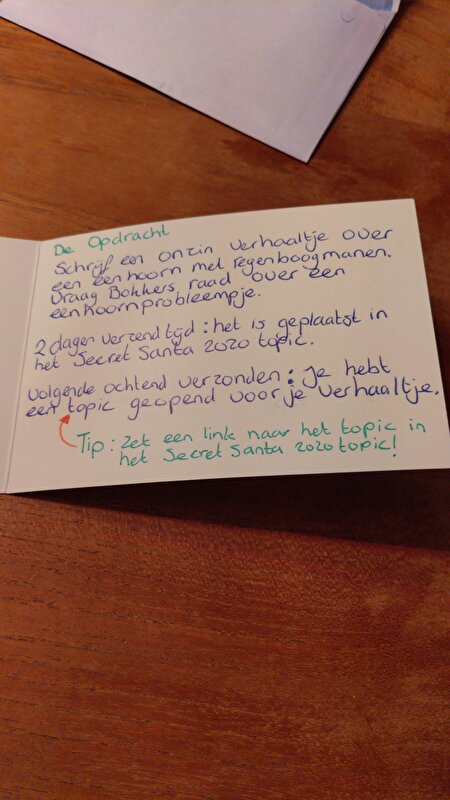 De Opdracht
Schrijf een onzin verhaaltje over
een eenhoorn met regenboogmanen.
Vraag Bokkers raad over een
eenhoornprobleempje.
2 dagen verzendtijd : het is geplaatst in
het Secret Santa 2020 topic.
Volgende ochtend verzonden : Je hebt
een topic geopend voor je verhaaltje.
Tip : Zet een link naar het topic in
het Secret Santa 2020 topic!